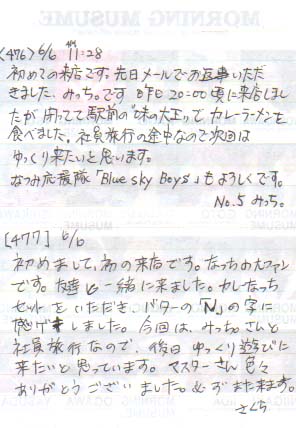 MORNING MUSUME
〈476〉 6/6 AM 11:28
初めての来店です。先日メールでお返事いただ
きました、みっちです 昨日20:00頃に来店しまし
たが 閉ってて駅前の「味の大王」で カレーラーメンを
食べました。社員旅行の途中なので次回は
ゆっくり来たいと思います。
なつみ応援隊「Blue sky Boys」もよろしくです。
No.5 みっち。
[477] 6/6
初めまして、初の来店です。なっちの大ファン
です。友達と一緒に来ました。カレーなっち
セットをいただき、バターの「N」の字に
しました。今回は、みっちさんと
社員旅行なので、後日 ゆっくり遊びに
来たいと思っています。マスターさん 色々
ありがとうございました。必ずまた来ます。